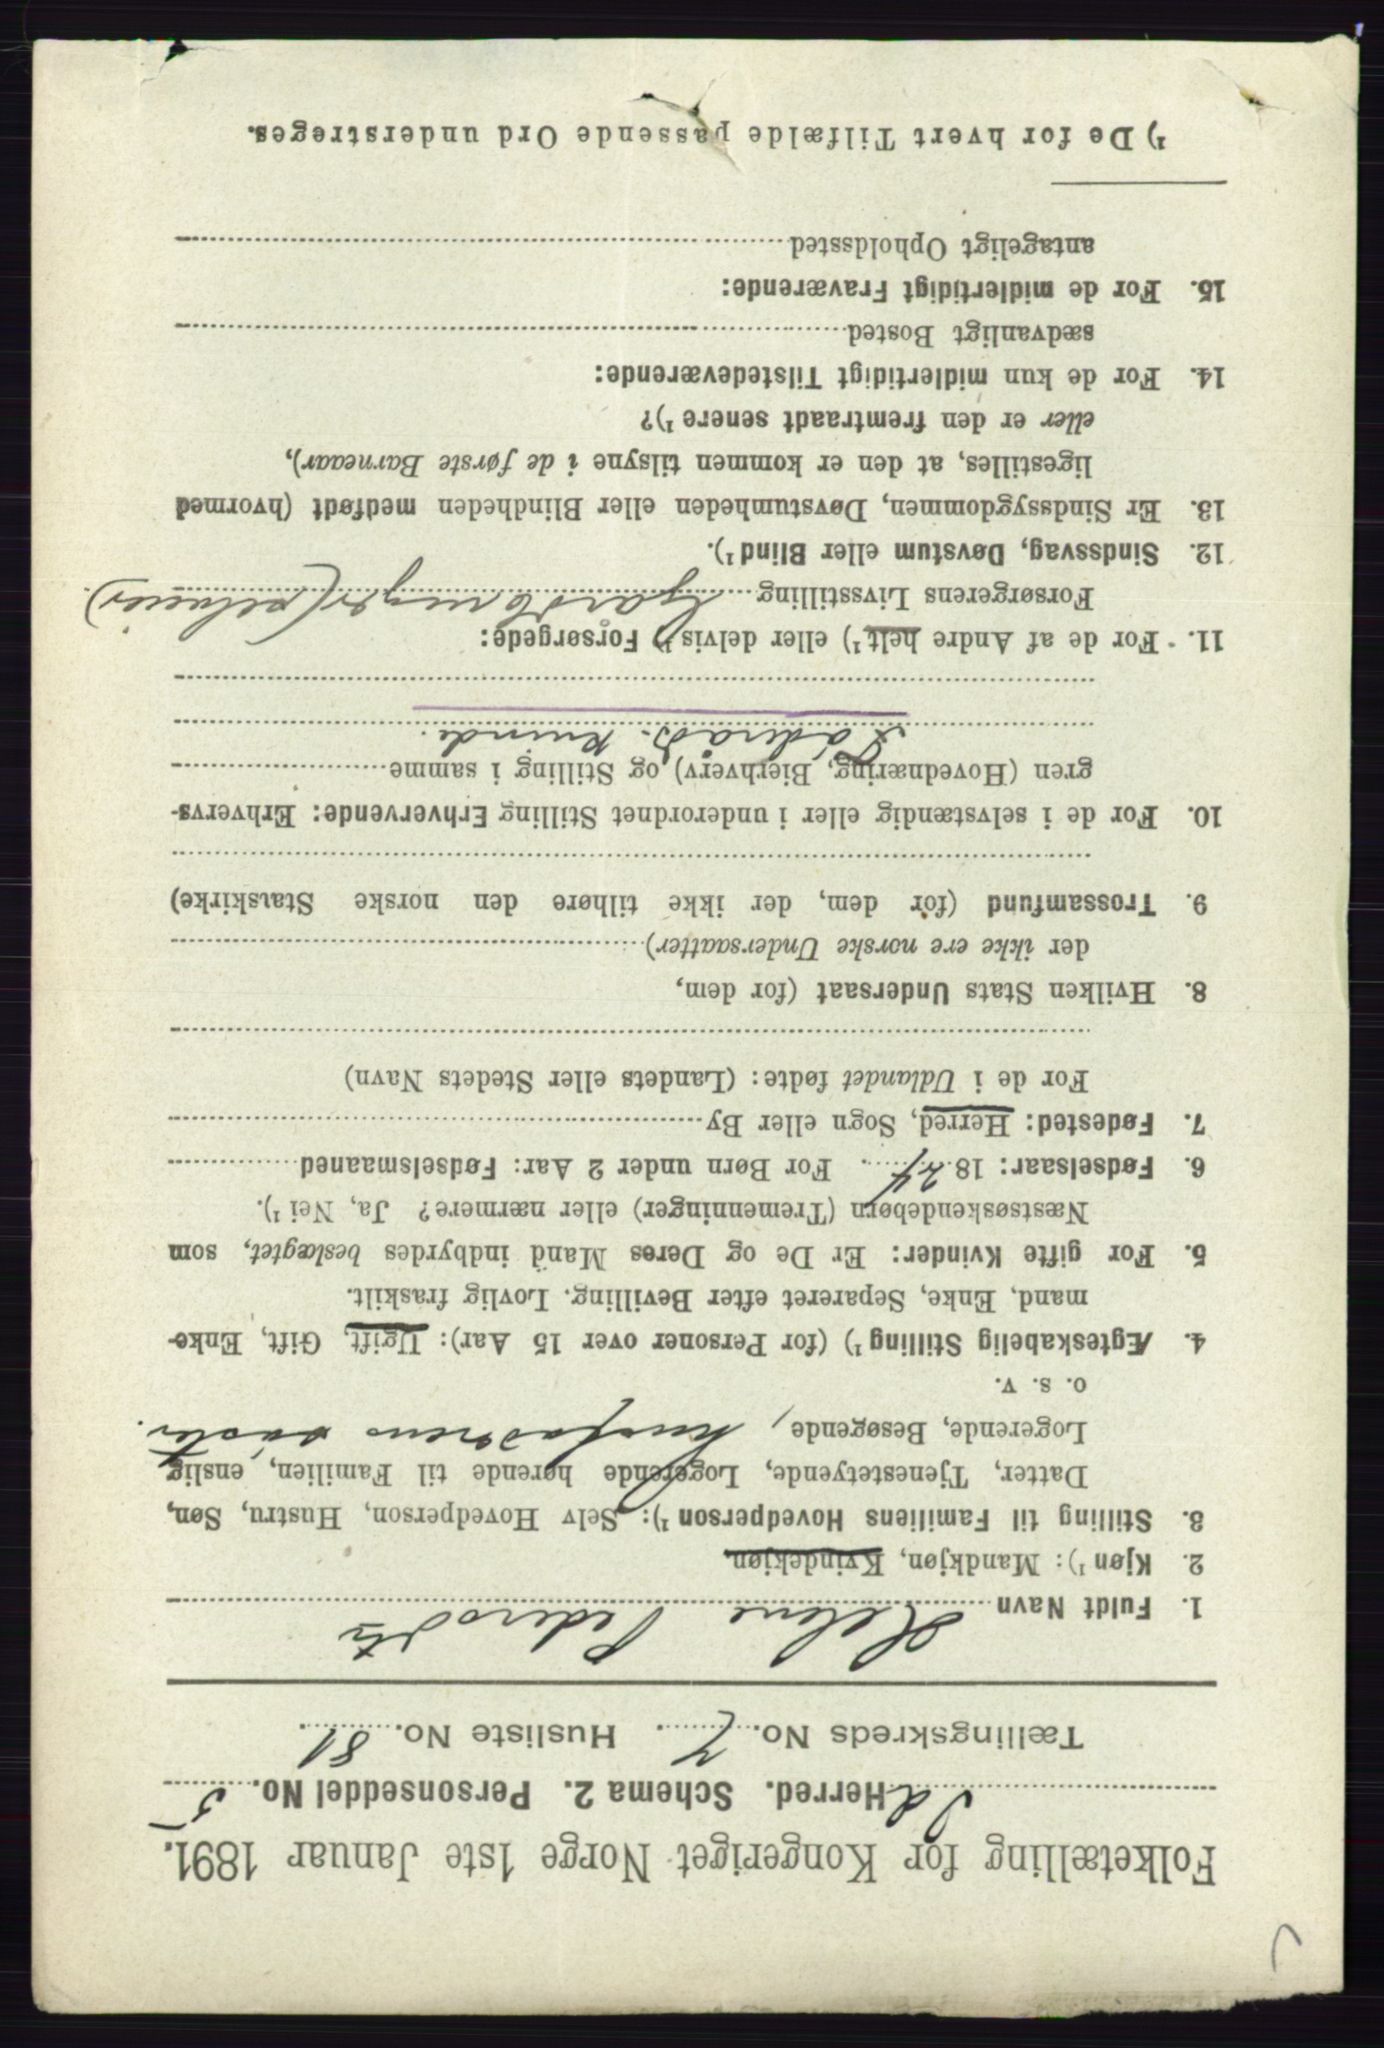 Folketælling for Kongeriget Norge 1ste Januar 1891.
Id Herred. Schema 2. Personseddel No. 5
Tællingskreds No. 7. Husliste No. 81.
1. Fuldt Navn Helene Pedersdtr
2. Kjøn ¹): Mandkjøn, Kvindekjøn.
3. Stilling til Familiens Hovedperson ¹): Selv Hovedperson, Hustru, Søn,
Datter, Tjenestetyende, Logerende hørende til Familien, enslig
Logerende, Besøgende, husfaderens søster.
o. s. v.
4. Ægteskabelig Stilling ¹) (for Personer over 15 Aar): Ugift, Gift, Enke-
mand, Enke, Separeret efter Bevilling. Lovlig fraskilt.
5. For gifte Kvinder: Er De og Deres Mand indbyrdes beslægtet, som
Næstsøskendebørn (Tremenninger) eller nærmere? Ja, Nei ¹).
6. Fødselsaar: 1824. For Børn under 2 Aar: Fødselsmaaned
7. Fødested: Herred, Sogn eller By
For de i Udlandet fødte: (Landets eller Stedets Navn)
8. Hvilken Stats Undersaat (for dem,
der ikke ere norske Undersaatter)
9. Trossamfund (for dem, der ikke tilhøre den norske Statskirke)
10. For de i selvstændig eller i underordnet Stilling Erhvervende: Erhvervs-
gren (Hovednæring, Bierhverv) og Stilling i samme
Føderåds. kvinde.
11. For de af Andre helt ¹) eller delvis ¹) Forsørgede:
Forsørgerens Livsstilling Gårdbruger
12. Sindssvag, Døvstum eller Blind ¹).
13. Er Sindssygdommen, Døvstumheden eller Blindheden medfødt (hvormed
ligestilles, at den er kommen tilsyne i de første Barneaar),
eller er den fremtraadt senere ¹)?
14. For de kun midlertidigt Tilstedeværende:
sædvanligt Bosted
15. For de midlertidigt Fraværende:
antageligt Opholdssted
¹) De for hvert Tilfælde passende Ord understreges.